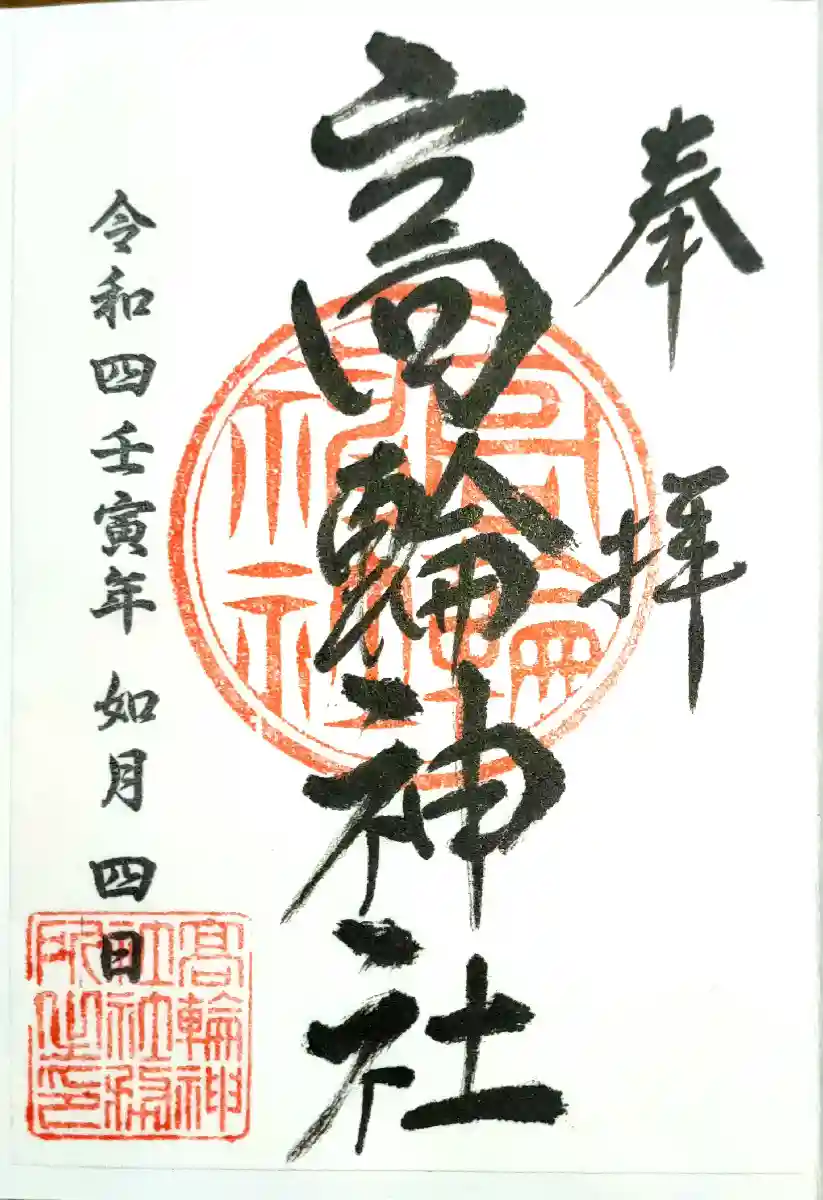 奉拝
高輪神社
令和四壬寅年 如月 四日
高輪神
社社務
所之印